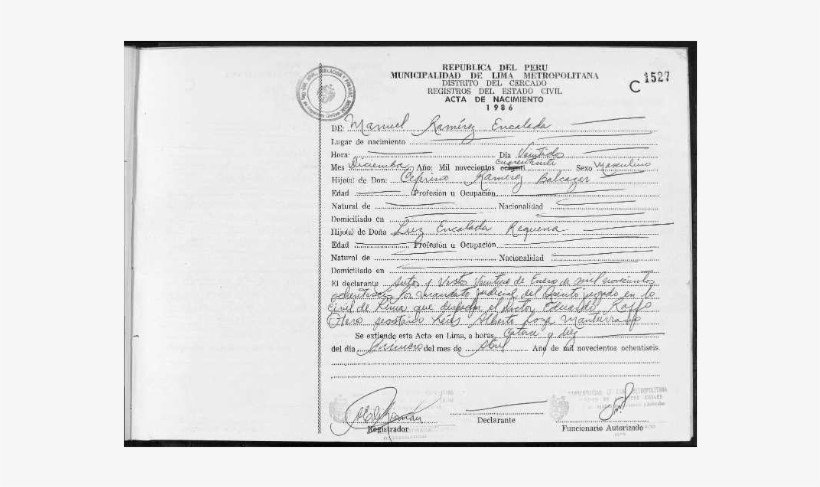 REPUBLICA DEL PERU
MUNICIPALIDAD DE LIMA METROPOLITANA
DISTRITO DEL CERCADO
REGISTROS DEL ESTADO CIVIL
ACTA DE NACIMIENTO
1986
C 1527
DE Manuel Ramírez Encalada
Lugar de nacimiento
Hora Día Veintidos
Mes Diciembre Año: Mil novecientos cuarentiseis Sexo Masculino
Hijo(a) de Don: Ceferino Ramírez Balcazar
Edad Profesión u Ocupación
Natural de Nacionalidad
Domiciliado en
Hijo(a) de Doña Luz Encalada Requena
Edad Profesión u Ocupación
Natural de Nacionalidad
Domiciliado en
El declarante Autos y Vistos Veintiuno de Enero de mil novecientos
ochentiseis por mandato judicial del Quinto juzgado en lo
Civil de Lima que despacha el doctor Eduardo Raffo
Otero secretario Luis Alberto
Se extiende esta Acta en Lima, a horas Catorce y diez
del día Primero del mes de Abril Año de mil novecientos ochentiseis
Registrador
Declarante
Funcionario Autorizado